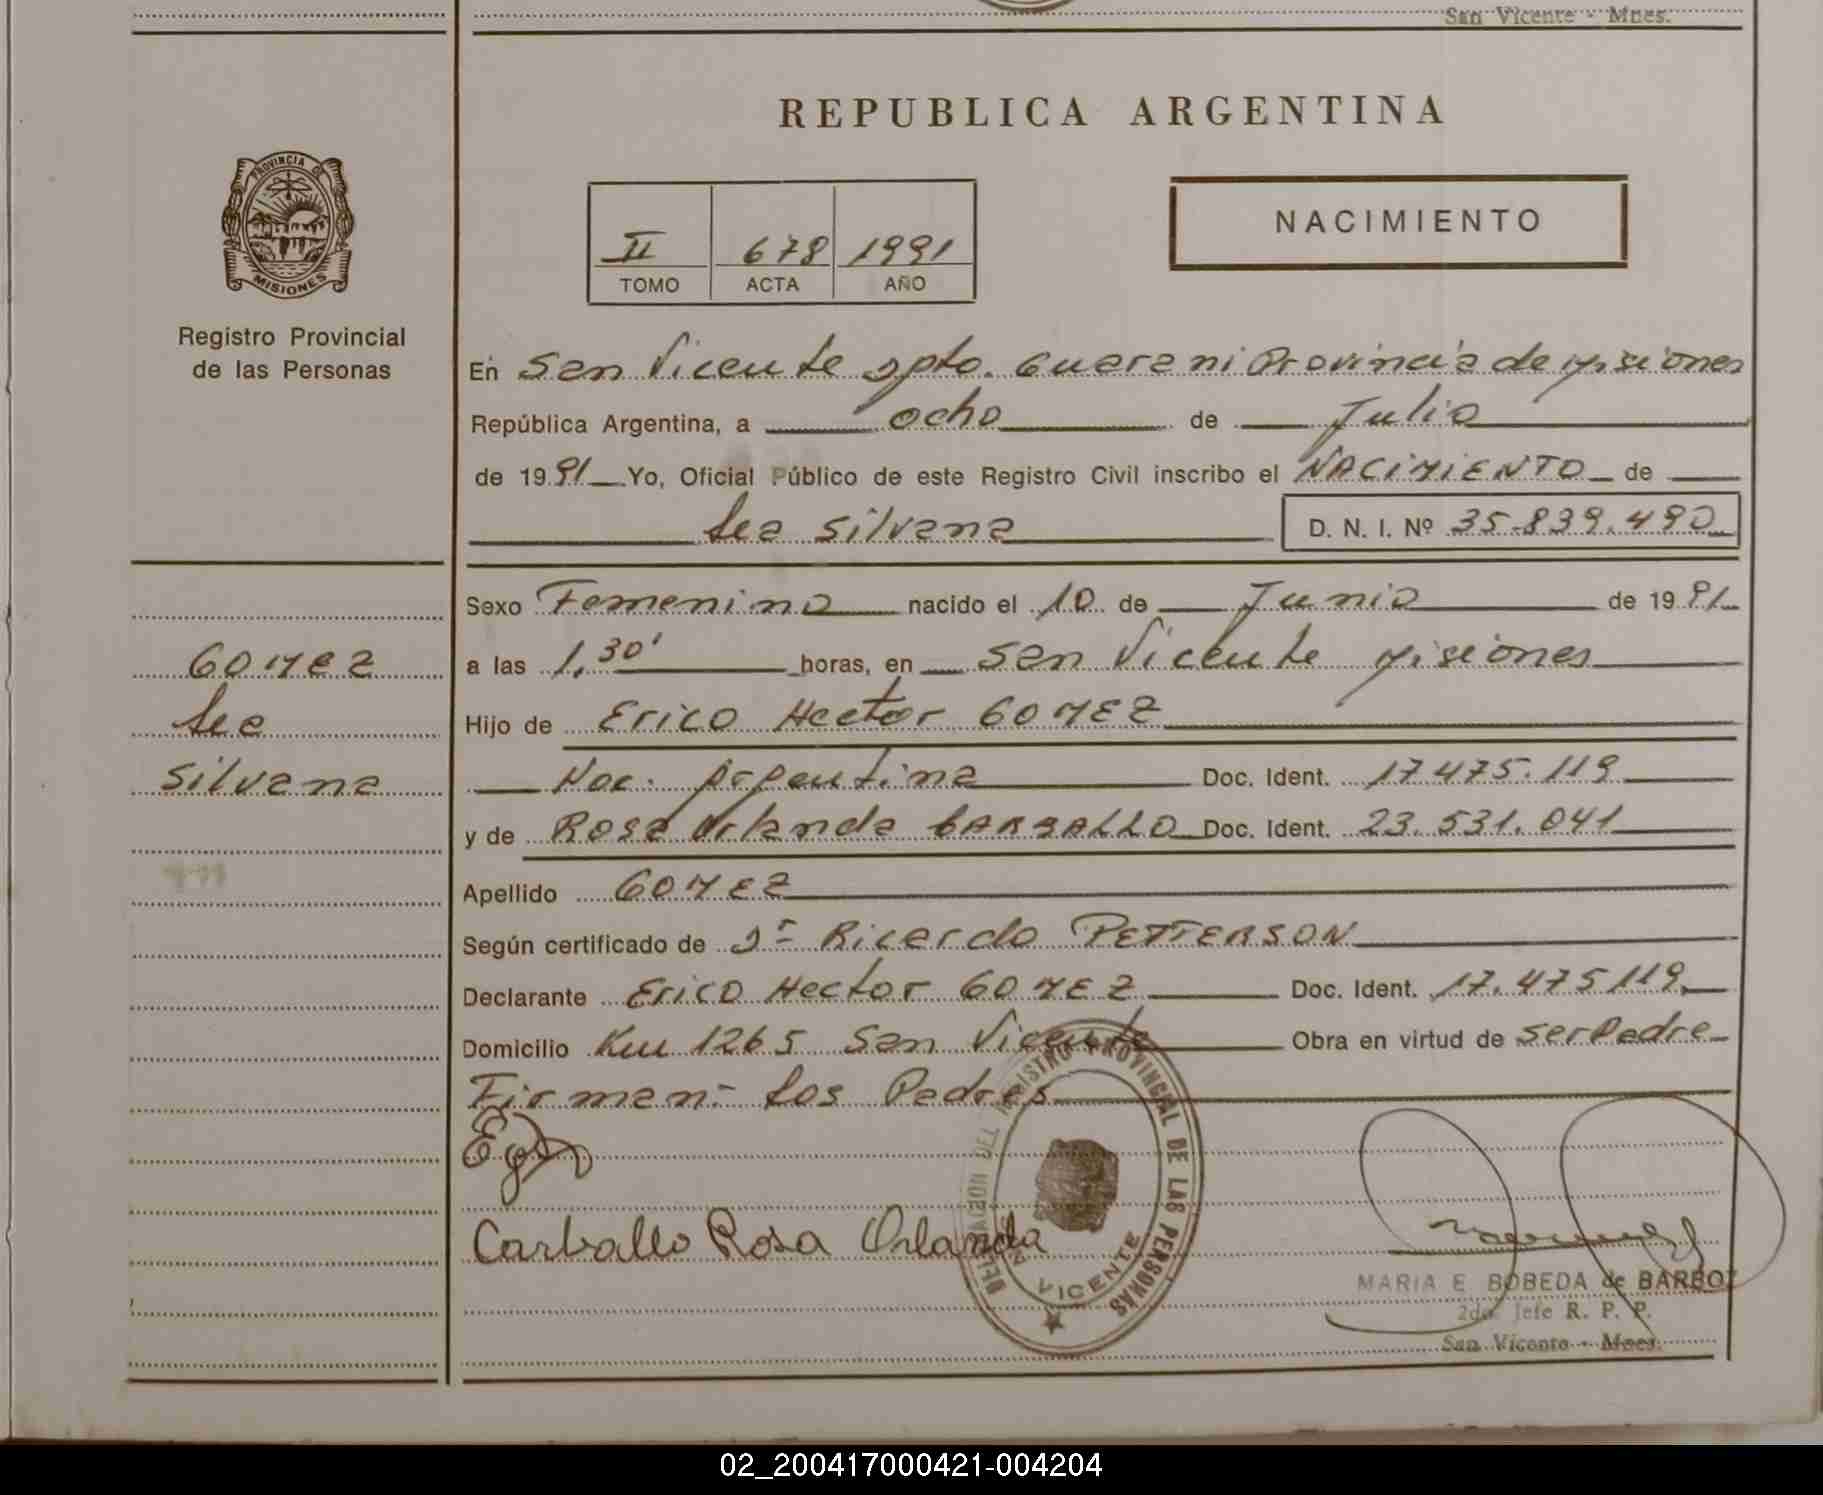 San Vicente - Mnes.
REPUBLICA ARGENTINA
PROVINCIA DE
MISIONES
Registro Provincial
de las Personas
II 678 1991
TOMO ACTA AÑO
NACIMIENTO
En San Vicente Dpto. Guarani Provincia de Misiones
República Argentina, a ocho de Julio
de 1991 Yo, Oficial Público de este Registro Civil inscribo el NACIMIENTO de
Lea Silvana D. N. I. Nº 35.839.490
GOMEZ
Lea
Silvana
Sexo Femenino nacido el 10 de Junio de 1991
a las 1,30' horas, en San Vicente Misiones
Hijo de Erico Hector GOMEZ
Nac. Argentina Doc. Ident. 17475.119
y de Rosa Orlanda CARBALLO Doc. Ident. 23.531.041
Apellido GOMEZ
Según certificado de Dr Ricardo PETTERSON
Declarante Erico Hector GOMEZ Doc. Ident. 17.475119
Domicilio Km 1265 San Vicente Obra en virtud de ser Padre
Firman: Los Padres
Carballo Rosa Orlanda
DELEGACION DEL REGISTRO PROVINCIAL DE LAS PERSONAS
VICENTE
MARIA E. BOBEDA de BARBOZ
2do. Jefe R. P. P.
San Vicente - Mnes.
02_200417000421-004204